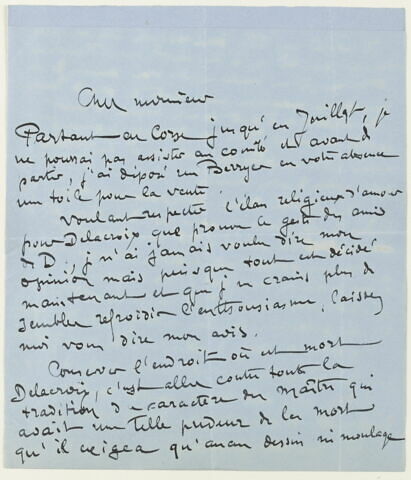 Cher monsieur
Partant en Corse jusqu'en Juillet, je
ne pourrai pas assister au comité et avant de
partir, j'ai déposé en votre absence
une toile pour la vente
voulant respecter l'élan religieux d'amour
pour Delacroix que prouve le geste des amis
de D. je n'ai jamais voulu dire mon
opinion mais puisque tout est décidé
maintenant et que je ne crains plus de
sembler refroidir l'enthousiasme, laissez
moi vous dire mon avis.
Conserver l'endroit où est mort
Delacroix, c'est aller contre toute la
tradition de caractère du maître qui
avait une telle pudeur de la mort
qu'il exigea qu'aucun dessin ni moulage